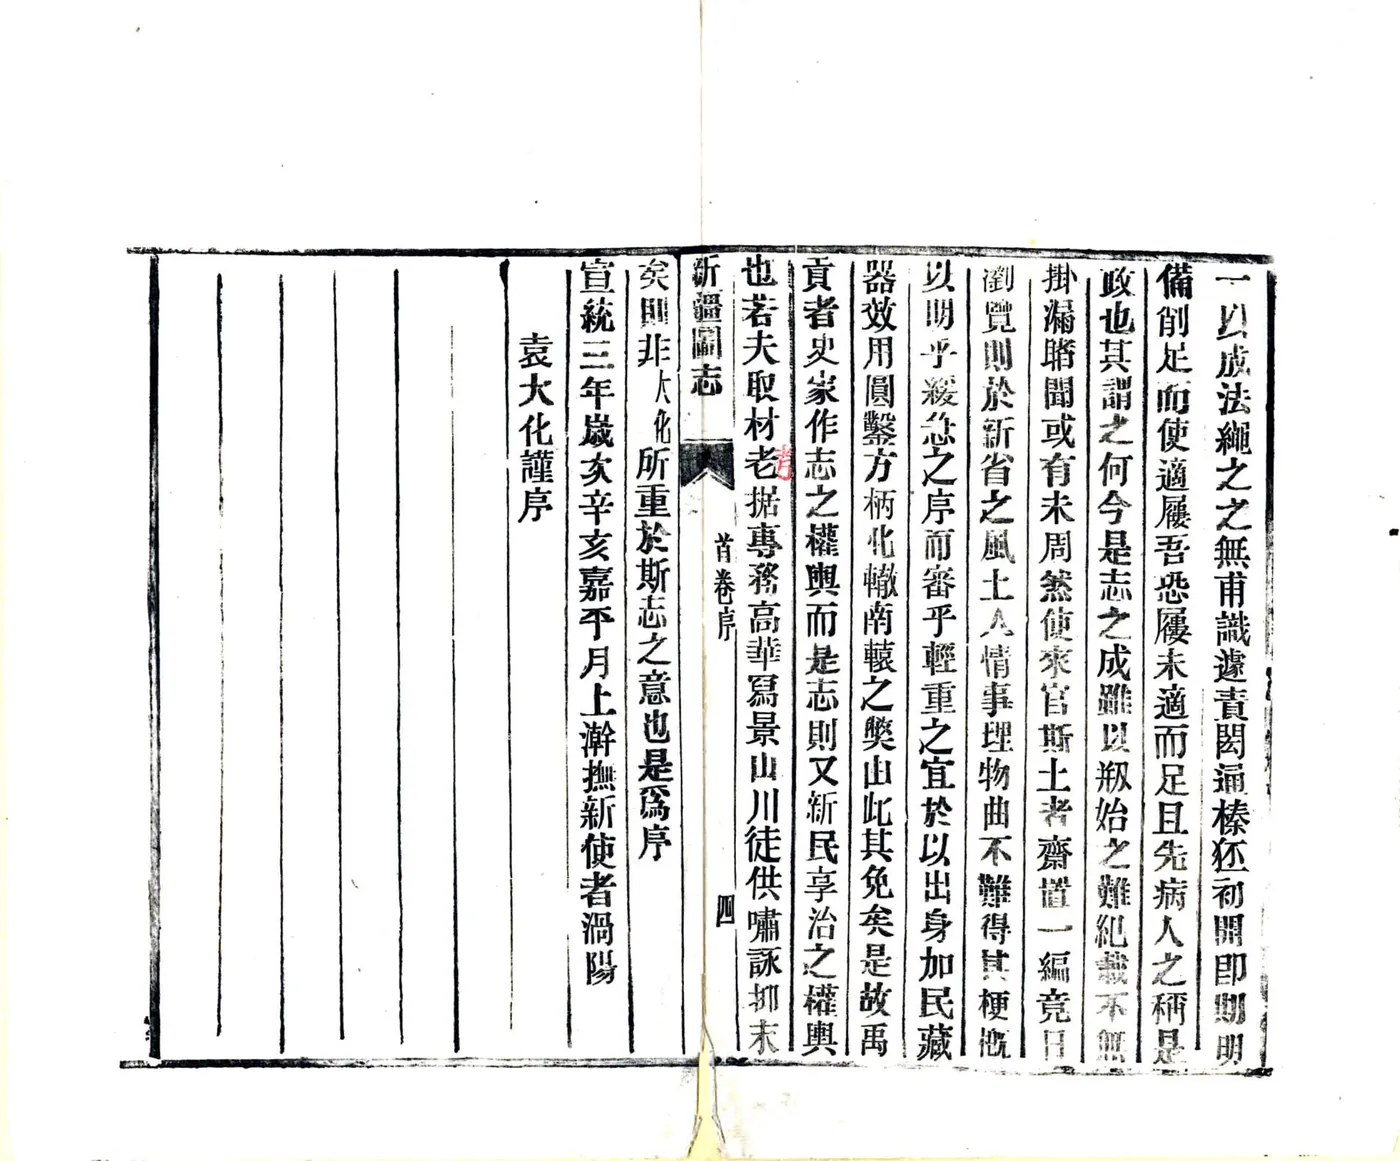 一以成法繩之之無甫識遽責閎通榛狉初開卽期明
備削足而使適屨吾恐屨未適而足且先病人之稱是
政也其謂之何今是志之成雖以剏始之難紀載不無
掛漏睹聞或有未周然使來官斯土者齋置一編竟日
瀏覽則於新省之風土人情事理物曲不難得其梗概
以明乎緩急之序而審乎輕重之宜於以出身加民藏
器效用圓鑿方柄北轍南轅之獘由此其免矣是故禹
貢者史家作志之權輿而是志則又新民享治之權輿
也若夫取材老据專務高華寫景山川徒供嘯詠抑末
考
新疆圖志
首卷序
四
矣則非大化所重於斯志之意也是爲序
宣統三年歲次辛亥嘉平月上澣撫新使者渦陽
袁大化謹序